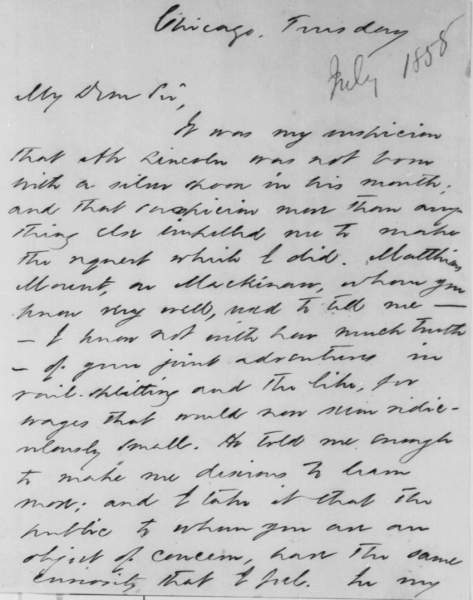 Chicago, Tuesday
July 1858
My Dear Sir,
It was my suspicion
that Abe Lincoln was not born
with a silver spoon in his mouth;
and that suspicion more than any
thing else impelled me to make
the request which I did. Matthias
Mount, on Mackinaw, whom you
know very well, used to tell me —
— I know not with how much truth
— of your joint adventures in
rail-splitting and the like, for
wages that would now seem ridic-
ulously small. He told me enough
to make me desirous to learn
more; and I take it that the
public to whom you are an
object of concern, have the same
curiosity that I feel. In my